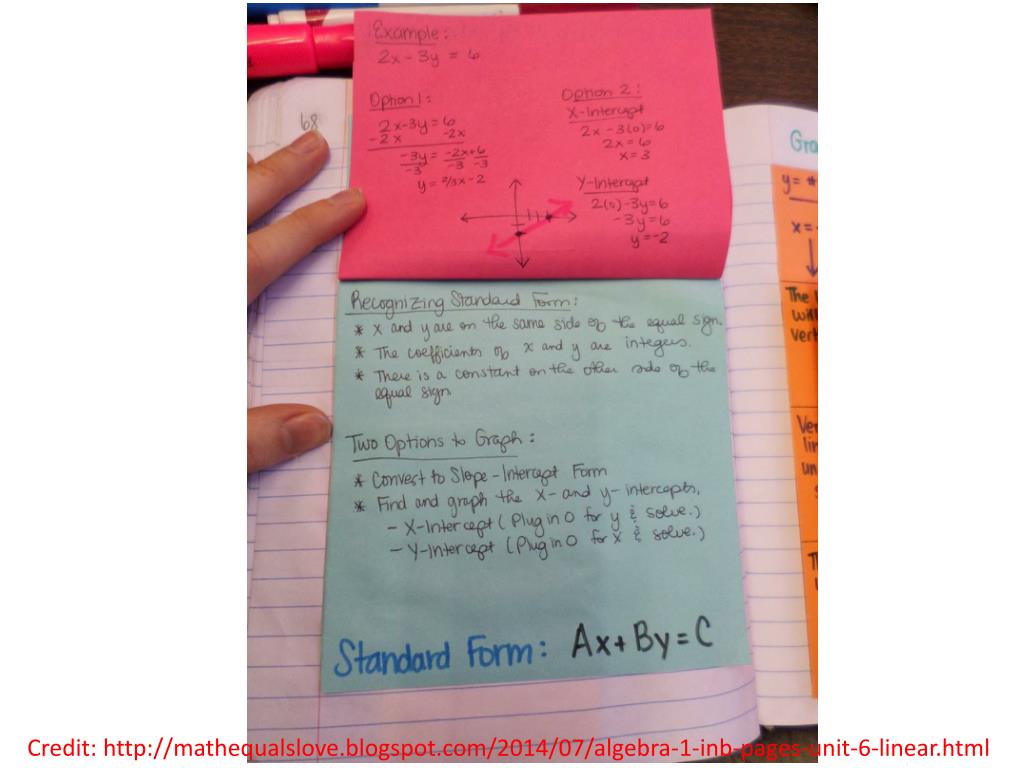 68
Example:
2x - 3y = 6
Option 1:
2x-3y=6
-2x -2x
-3y = -2x+6
-3 -3 -3
y = 2/3x - 2
Option 2:
X-Intercept
2x - 3(0)=6
2x = 6
x = 3
Y-Intercept
2(0)-3y=6
-3y=6
y=-2
Recognizing Standard Form:
* x and y are on the same side of the equal sign.
* The coefficients of x and y are integers.
* There is a constant on the other side of the
equal sign.
Two Options to Graph:
* Convert to Slope-Intercept Form
* Find and graph the x- and y-intercepts.
- X-Intercept (Plug in 0 for y & solve.)
- Y-Intercept (Plug in 0 for x & solve.)
Standard Form: Ax + By = C
Gra
y = #
x =
The
will
vert
Ver
lin
un
Credit: http://mathequalslove.blogspot.com/2014/07/algebra-1-inb-pages-unit-6-linear.html